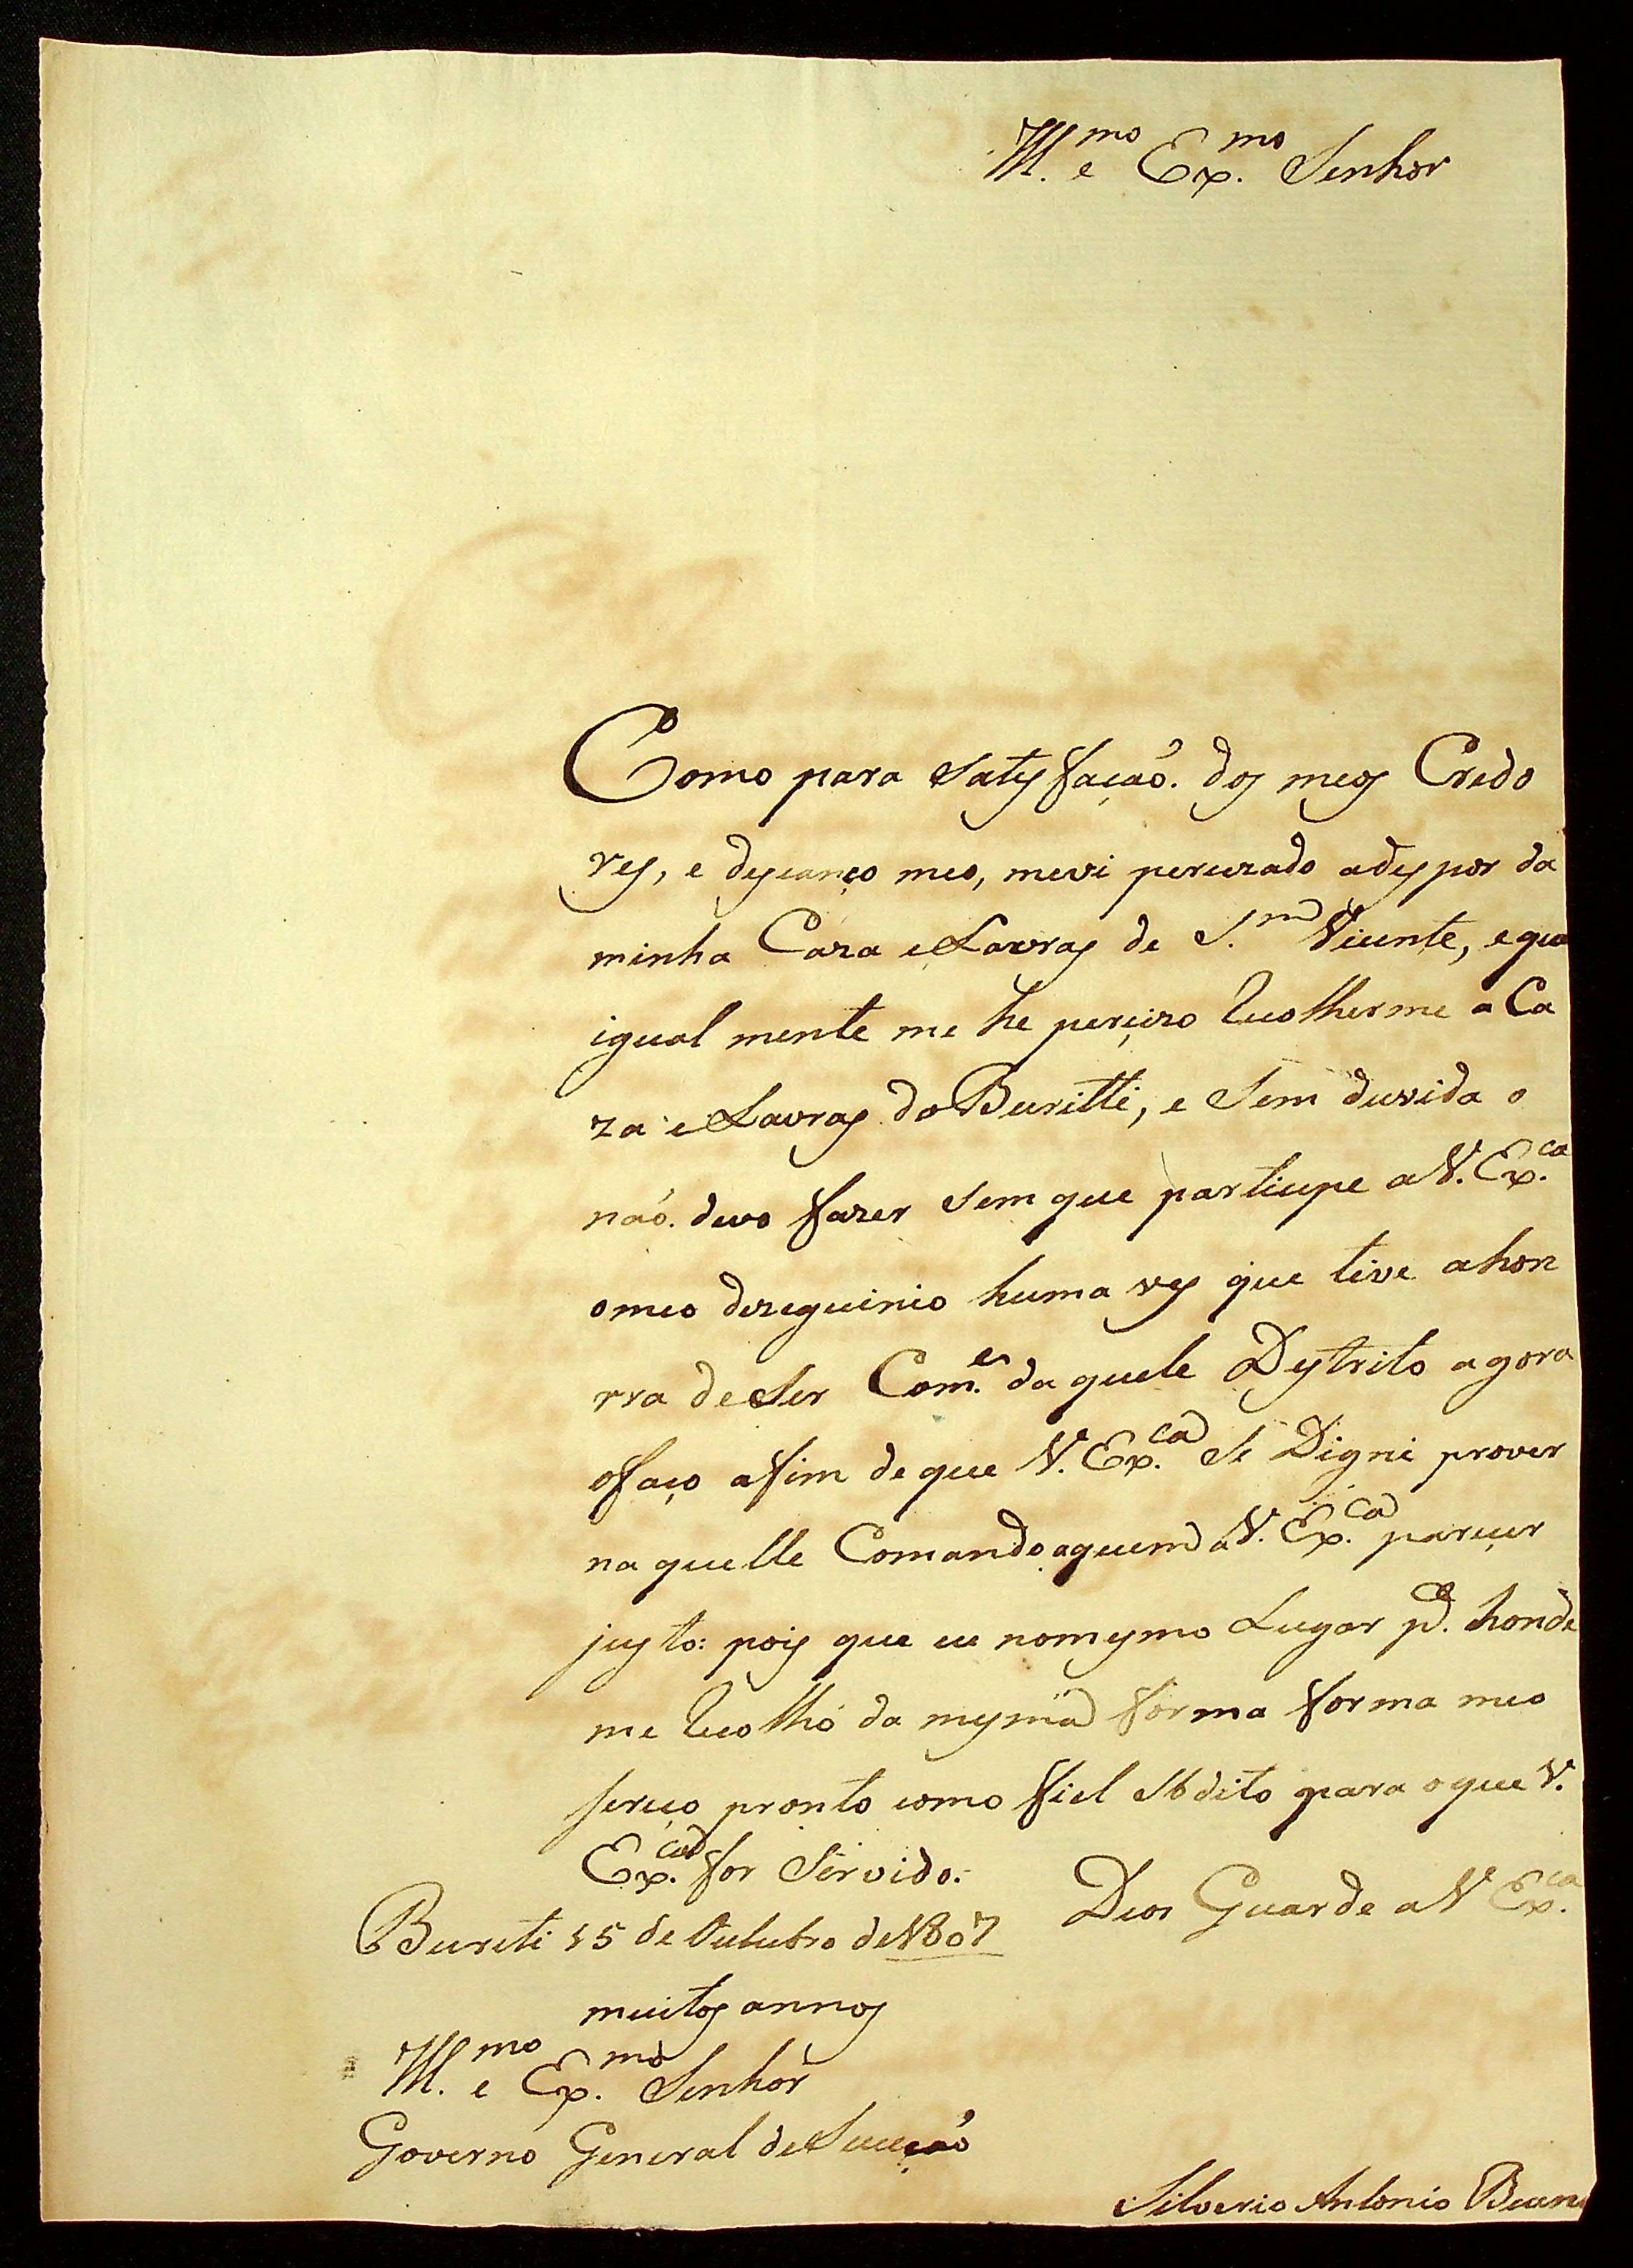 Ill.mo e Ex.mo Senhor
Como para satysfação dos meos Credo
res, e descanço meo, mevi percizado adespor da
minha Caza e Lavras de S.m Vicente, e que
igual mente me he perçizo Recolherme a Ca
za e Lavras do Buritti, e Sem duvida o
não devo fazer Sem que participe aV. Ex.ca
omeo dezeguinio huma ves que tive ahon
rra deSer Com.e da quele Destrito agora
ofaço afim de que V. Ex.ca Se Digne prover
na quelle Comando aquem a V. Ex.ca pareçer
justo: pois que eu nomesmo Lugar p.a honde
me Recolhó da mesma forma forma meo
fereço pronto como fiel Sbdito para oque V.
Ex.ca for Servido. Deos Guarde aV Ex.ca
Bureti 15 de Outubro de1807
muitos annos
Ill.mo e Ex.mo Senhor
Governo General deSuceçaó
Silverio Antonio Buen